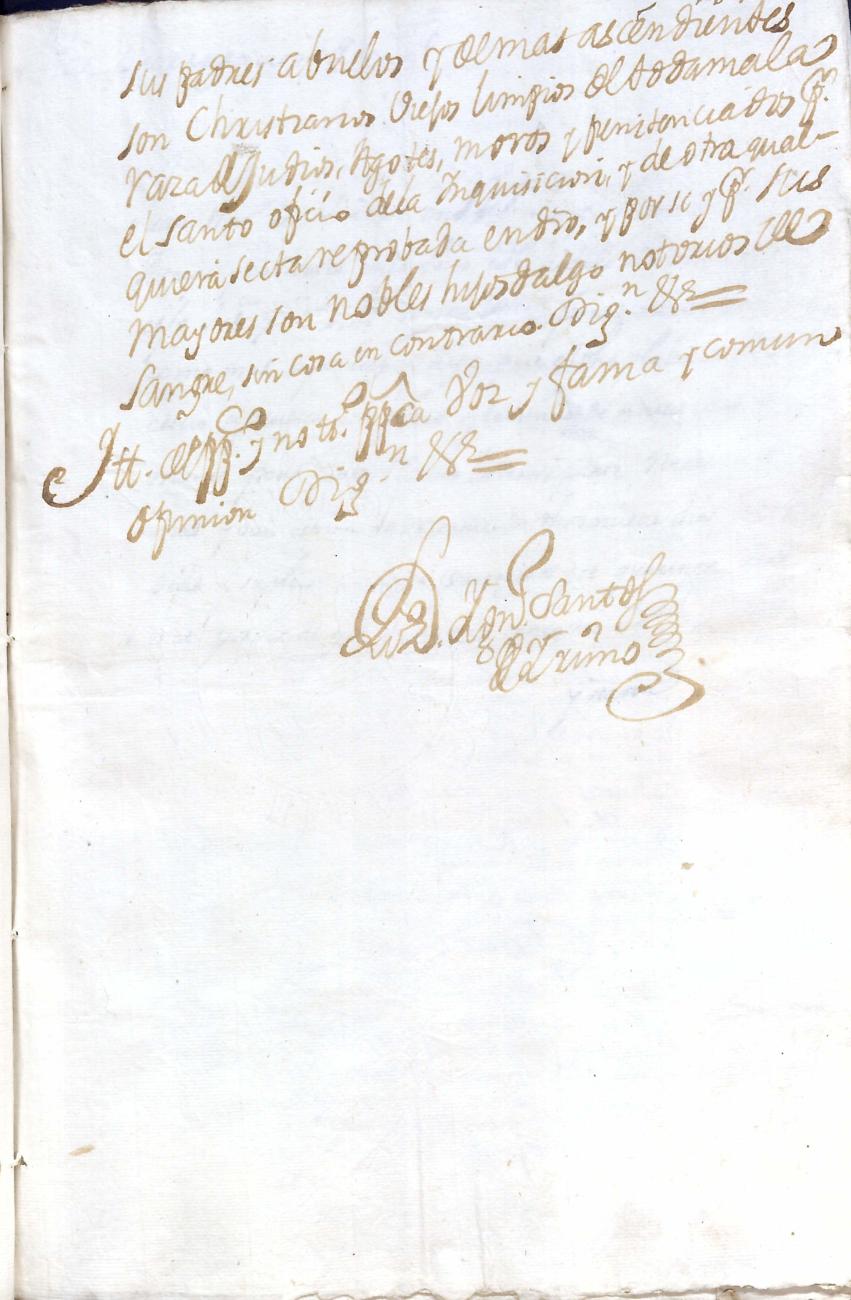 sus padres abuelos y demas ascendientes
son Christianos Viejos limpios de toda mala
raza de Judios, Agotes, moros y penitenciados p.r
el santo ofiçio dela Inquisicion, y de otra qual-
quiera secta reprobada en dro, y por si y p.r sus
mayores son nobles hijosdalgo notorios de
sangre, sin cosa en contrario. Dig.n &a =
Itt. de pp.co y not.o ppca voz y fama y comun
opinion Dig.n &a =
Santos